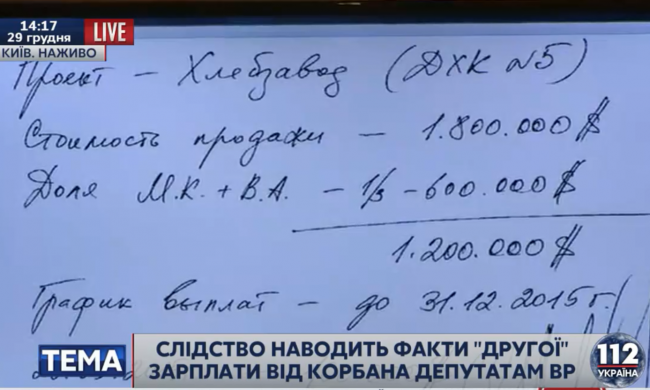 14:17
29 грудня
LIVE
КИЇВ. НАЖИВО
Проект – Хлебзавод (ДХК №5)
Стоимость продажи – 1.800.000 $
Доля М.К. + В.А. – 1/3 – 600.000 $
1.200.000 $
График выплат – до 31.12.2015 г.
ТЕМА
СЛІДСТВО НАВОДИТЬ ФАКТИ "ДРУГОЇ"
ЗАРПЛАТИ ВІД КОРБАНА ДЕПУТАТАМ ВР
112
УКРАЇНА